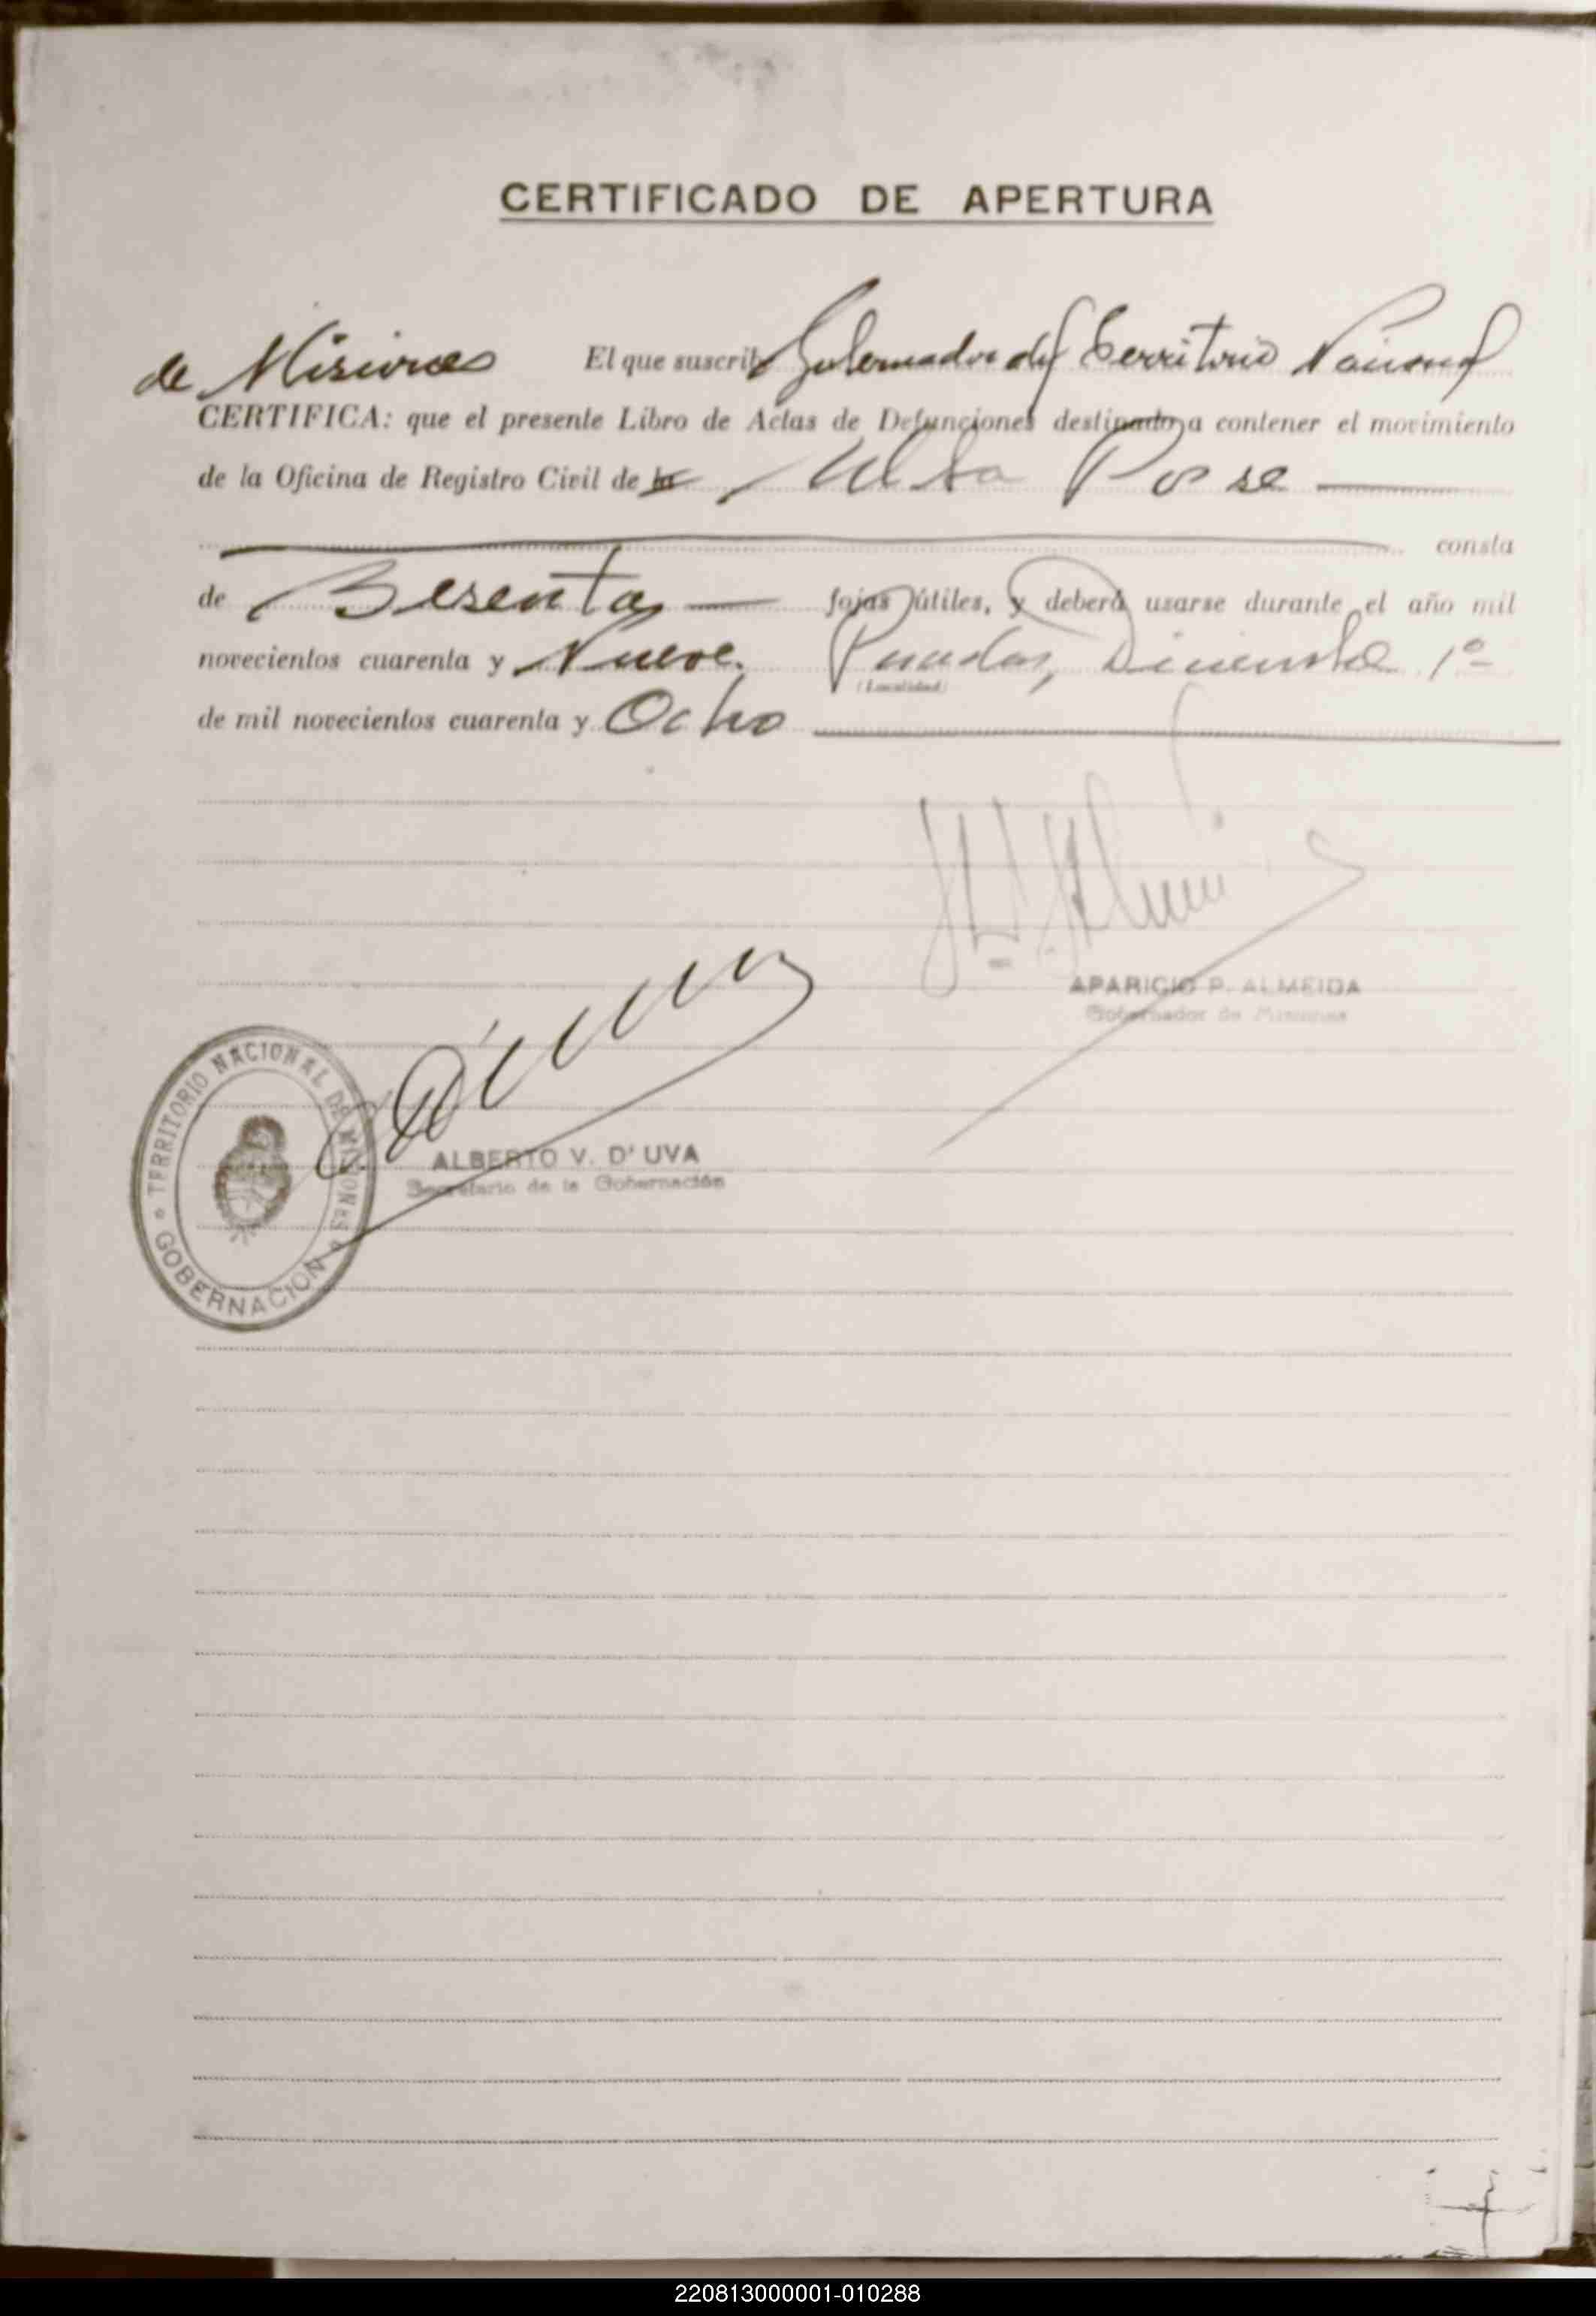 CERTIFICADO DE APERTURA
El que suscribe Gobernador del Territorio Nacional
de Misiones
CERTIFICA: que el presente Libro de Actas de Defunciones destinado a contener el movimiento
de la Oficina de Registro Civil de la Alba Posse
consta
de Sesenta fojas útiles, y deberá usarse durante el año mil
novecientos cuarenta y Nueve. Posadas, Diciembre 1º
(Localidad)
de mil novecientos cuarenta y Ocho
APARICIO P. ALMEIDA
Gobernador de Misiones
TERRITORIO NACIONAL DE MISIONES
GOBERNACION
ALBERTO V. D'UVA
Secretario de la Gobernación
220813000001-010288